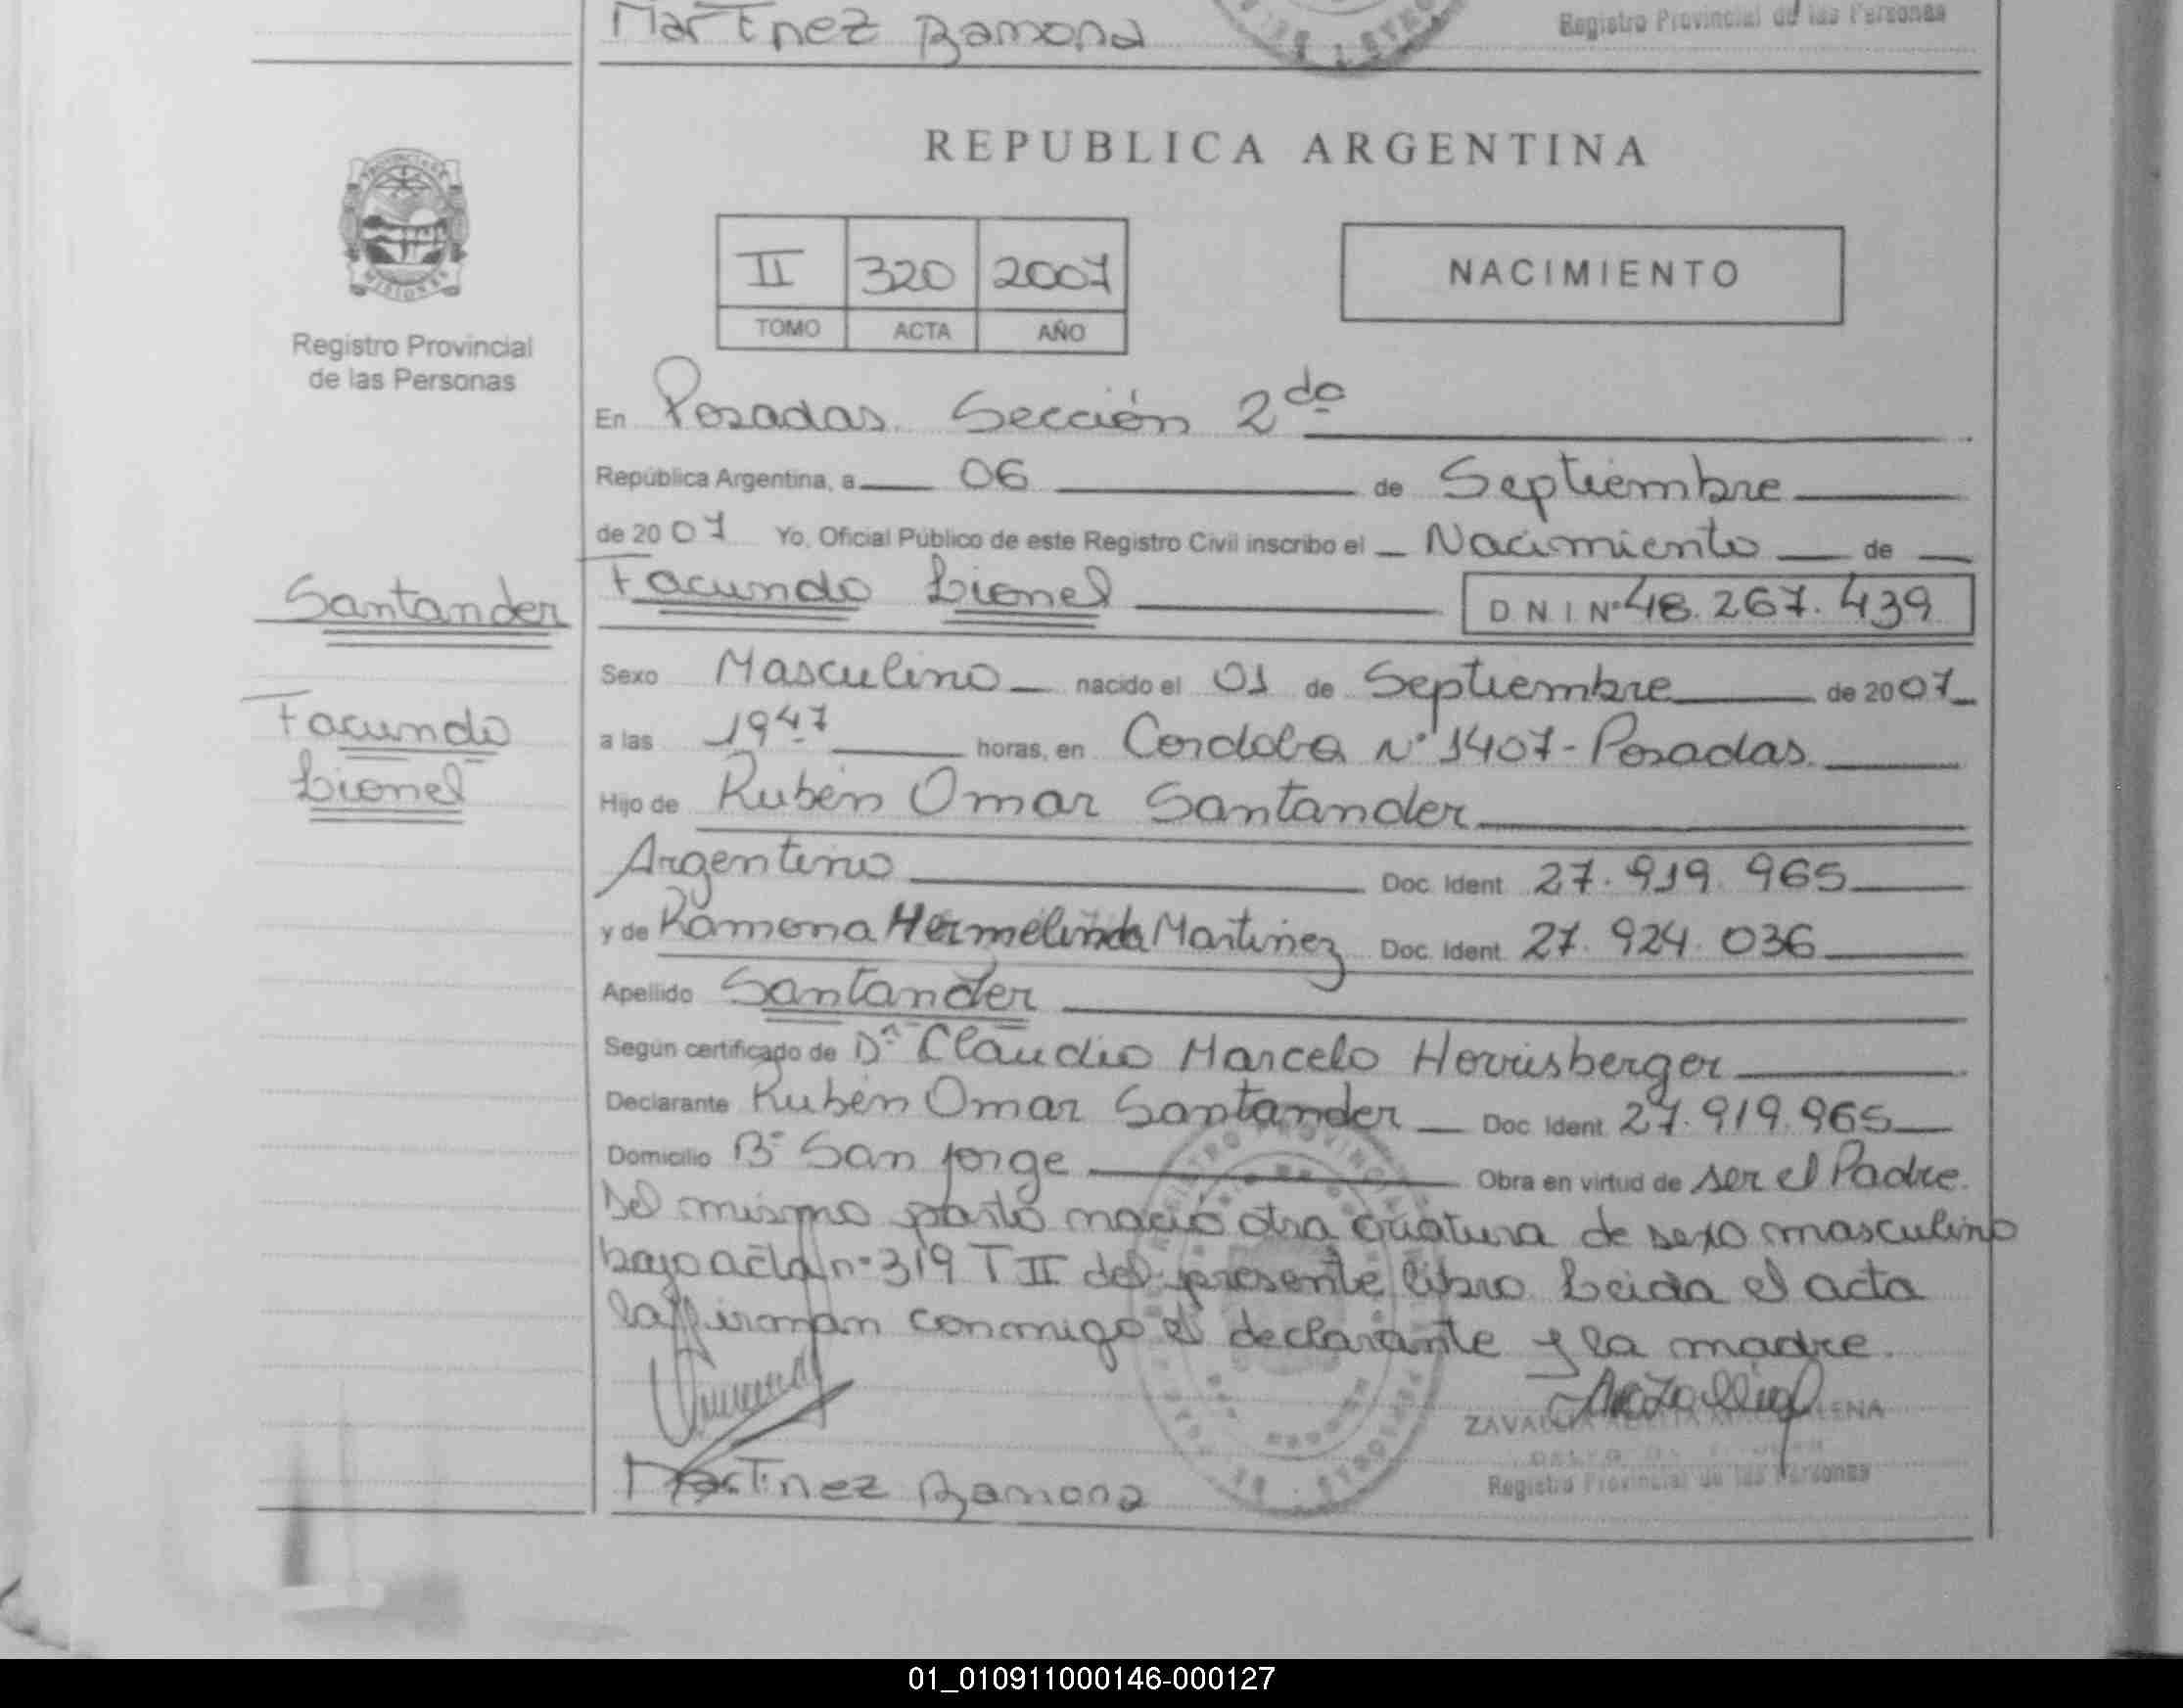 Martinez Ramona
Registro Provincial de las Personas
REPUBLICA ARGENTINA
PROVINCIA DE
MISIONES
Registro Provincial
de las Personas
II 320 2007
TOMO ACTA AÑO
NACIMIENTO
En Posadas Sección 2da
República Argentina, a 06 de Septiembre
de 2007 Yo, Oficial Público de este Registro Civil inscribo el Nacimiento de
Facundo Lionel DNI Nº 48.267.439
Santander
Facundo
Lionel
Sexo Masculino nacido el 01 de Septiembre de 2007
a las 19 47 horas, en Cordoba Nº 1407 - Posadas
Hijo de Rubén Omar Santander
Argentino Doc. Ident 27.919.965
y de Ramona Hermelinda Martinez Doc. Ident. 27.924.036
Apellido Santander
Según certificado de Dr Claudio Marcelo
Declarante Rubén Omar Santander Doc. Ident. 27.919.965
Domicilio Bº San Jorge Obra en virtud de ser el Padre.
Del mismo parto nació otra criatura de sexo masculino
bajo acta nº 319 T II del presente libro Leida el acta
la firman conmigo el declarante y la madre.
Martinez Ramona
Registro Provincial de las Personas
01_010911000146-000127